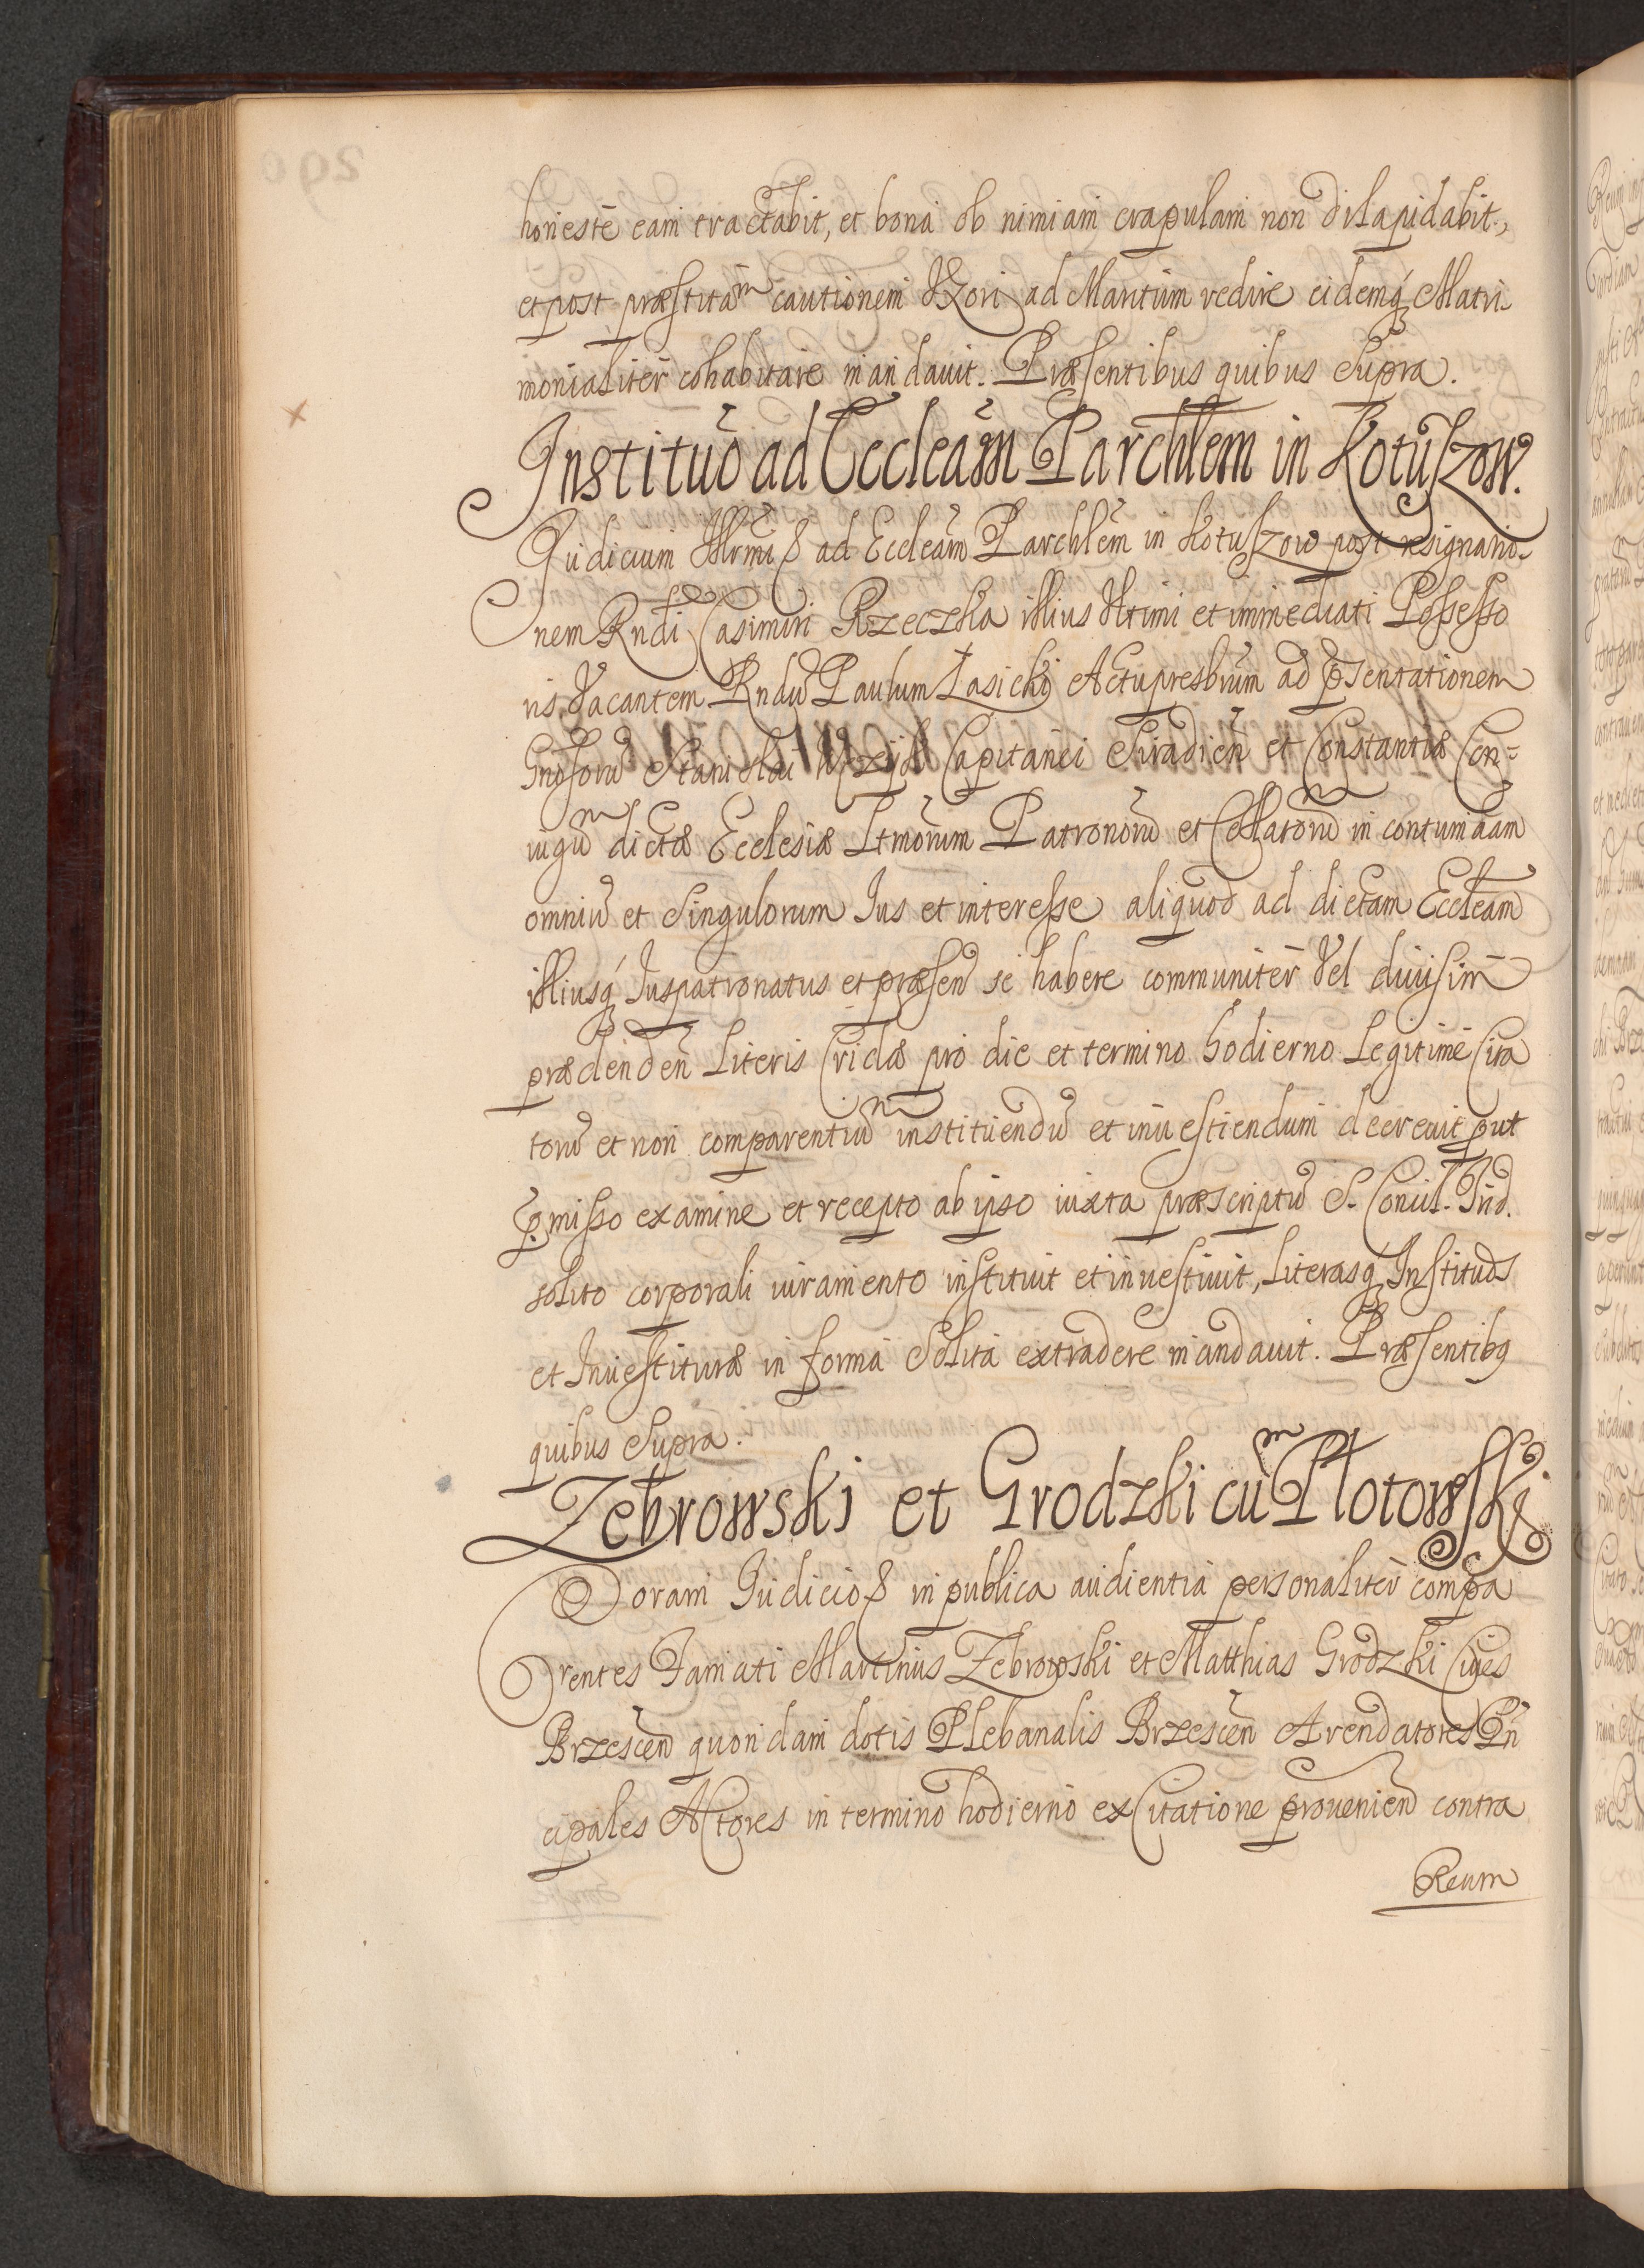 honestè eam tractabit, et bona ob nimiam crapulam non dilapidabit,
et post præstitam cautionem Uxori ad Maritum redire eidemq́ Matri-
monialiter cohabitare mandauit. Præsentibus quibus supra.
Institutō ad Eccleām Parchlem in Kotuszow.
Judicium ad Eccleām Parchlēm in Kotuszow post resignatio-
nem Rndi Casimiri Rzeczka illius Ultimi et immediati Possesso
ris Vacantem Rndū Paulum Łasicki Actupresbrūm ad pñsentationem
Gnosorū Stanislai Capitanei Siradieñ et Constantiæ Con=
iugū dictæ Ecclesiæ Ltmorum Patronorū et Collatorū in contumaām
omniū et singulorum Jus et interesse aliquod ad dictam Eccleām
illiusq́ Juspatronatus et præsen se habere communiter Vel diuisim
prædendeñ Literis Cridæ pro die et termino hodierno Legitimè Cita
torū et non comparentiū instituendū et inuestiendum decreuit put
pmisso examine et recepto ab ipso iuxta præscriptū S. Concil. Trid.
solito corporali iuramento instituit et inuestiuit, Literasq Institutōs
et Inuestituræ in forma Solita extradere mandauit. Præsentibq
quibus Supra.
Zebrowski et Grodzki cum Plotowski
Coram Judicio in publica audientia personaliter compa
rentes Famati Martinus Zebrowski et Matthias Grodzki Ciues
Brzesceñ quondam dotis Plebanalis Brzesceñ Arendatores Prin
cipales Actores in termino hodierno ex Citatione proueniēn contra
Reum